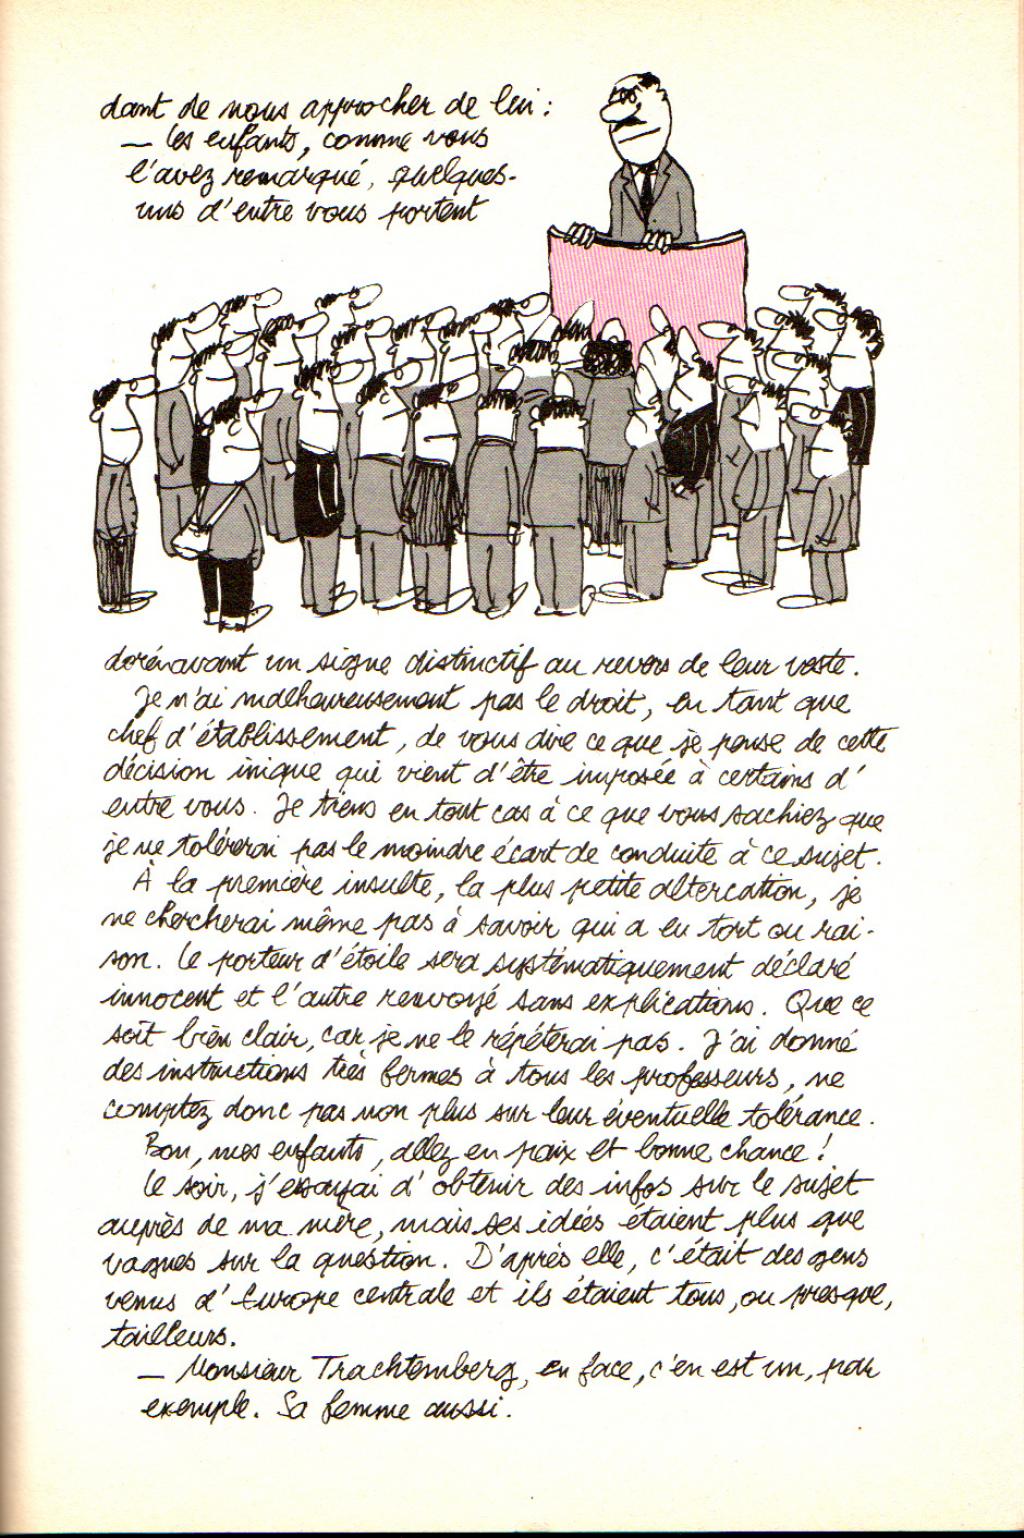 dant de nous approcher de lui :
— Les enfants, comme vous
l'avez remarqué, quelques-
uns d'entre vous portent
dorénavant un signe distinctif au revers de leur veste.
Je n'ai malheureusement pas le droit, en tant que
chef d'établissement, de vous dire ce que je pense de cette
décision inique qui vient d'être imposée à certains d'
entre vous. Je tiens en tout cas à ce que vous sachiez que
je ne tolérerai pas le moindre écart de conduite à ce sujet.
À la première insulte, la plus petite altercation, je
ne chercherai même pas à savoir qui a eu tort ou rai-
son. Le porteur d'étoile sera systématiquement déclaré
innocent et l'autre renvoyé sans explications. Que ce
soit bien clair, car je ne le répéterai pas. J'ai donné
des instructions très fermes à tous les professeurs, ne
comptez donc pas non plus sur leur éventuelle tolérance.
Bon, mes enfants, allez en paix et bonne chance !
Le soir, j'essayai d'obtenir des infos sur le sujet
auprès de ma mère, mais ses idées étaient plus que
vagues sur la question. D'après elle, c'était des gens
venus d'Europe centrale et ils étaient tous, ou presque,
tailleurs.
— Monsieur Trachtemberg, en face, c'en est un, par
exemple. Sa femme aussi.